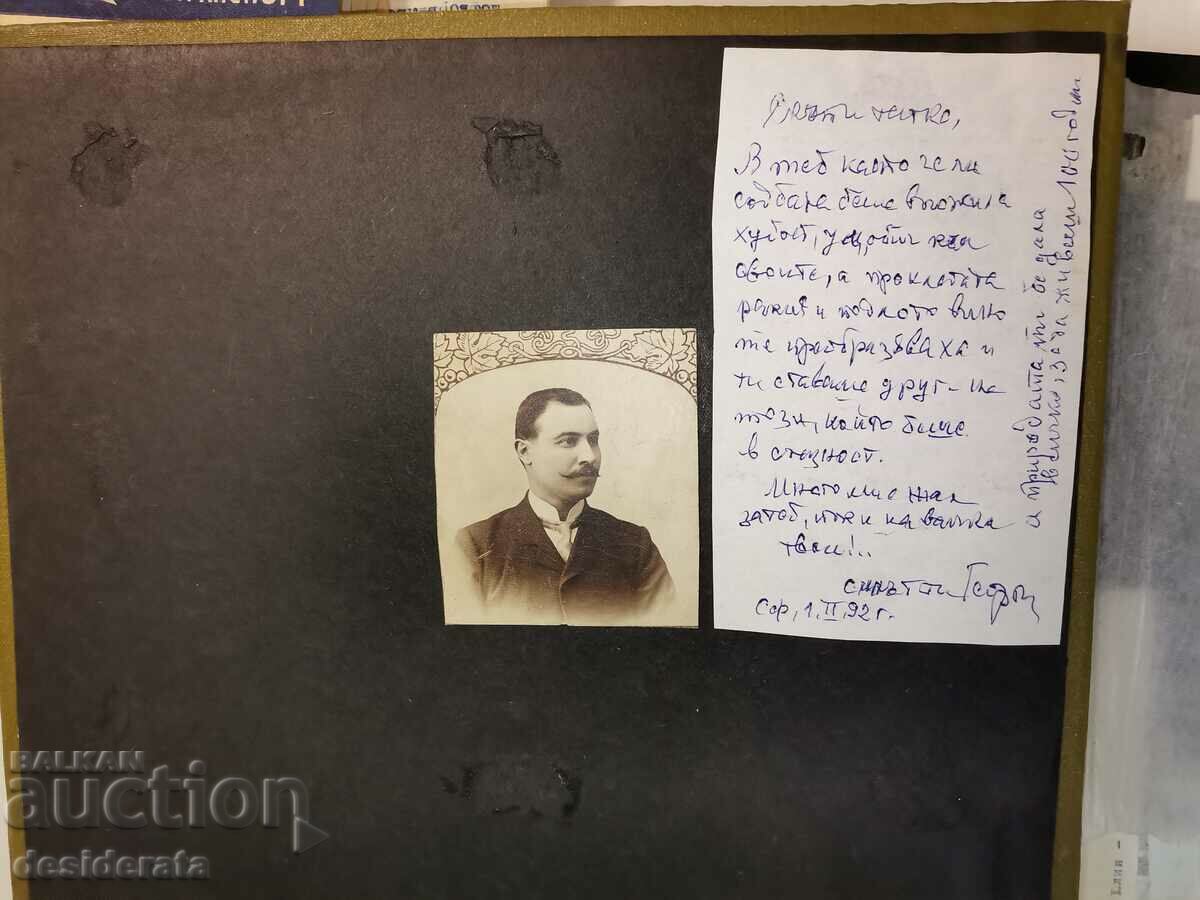 татко,
В теб като че ли
съдбата беше вложила
хубост, ум, обич към
своите, а проклетата
ракия и подлото вино
те преобразяваха и
ти ставаше друг – не
този, който беше
в същност.
Много ми е жал
за теб, пък и на всички
твои!..
синът ти Георги
Соф, 1.II.92 г.
а природата ти бе дала
всичко, за да живееш 100 години
BALKAN
auction
desiderata